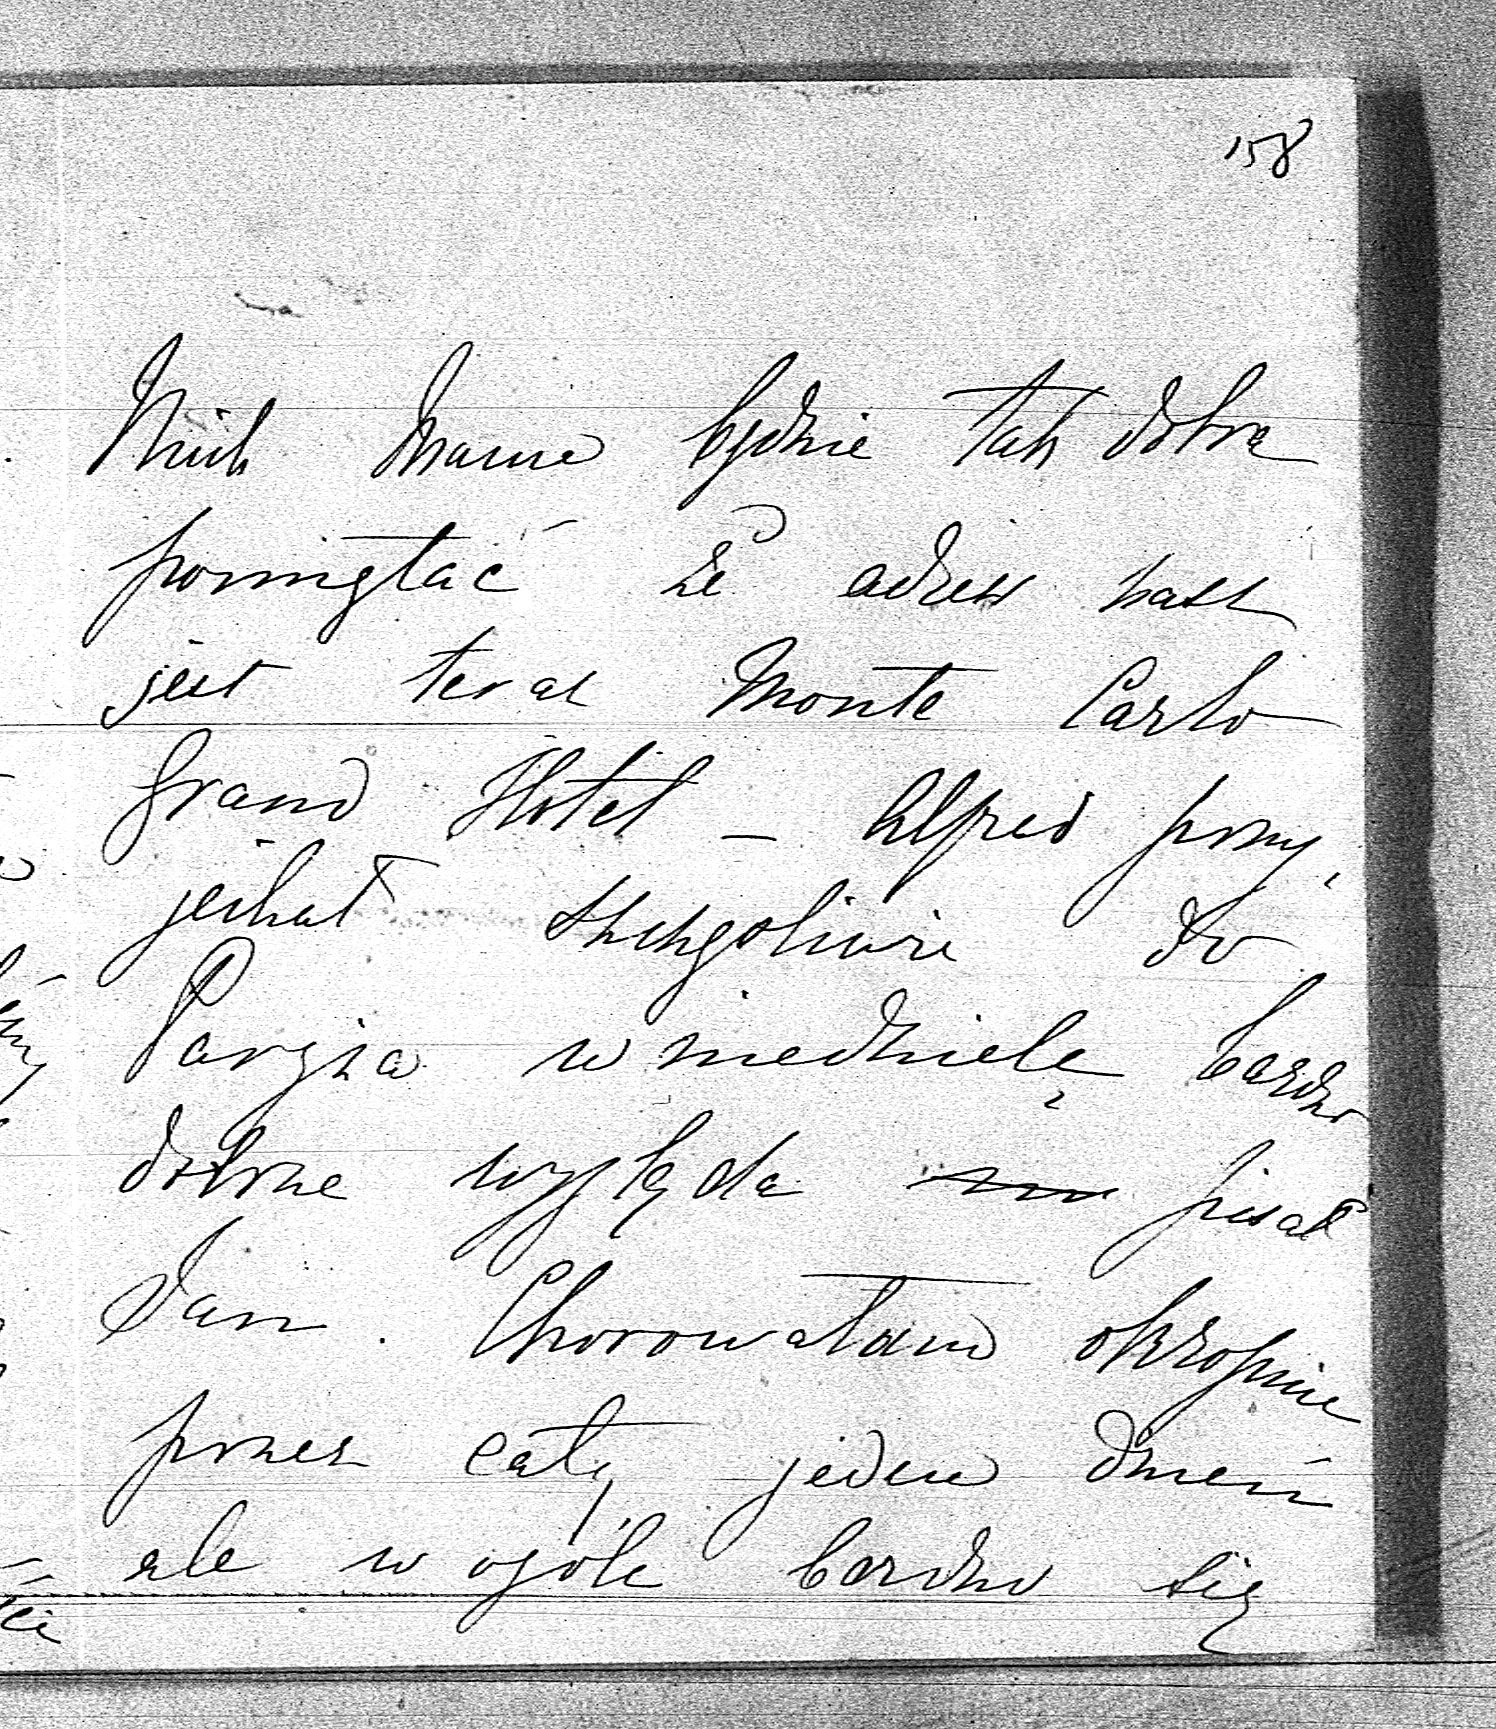 158
Niech Mama będzie tak dobra
pamiętać że adres nasz
jest teraz Monte Carlo
Grand Hotel – Alfred przy,
jechał szczęśliwie do
Paryża w niedzielę bardzo
dobrze wygląda pisał
Jan. Chorowałam okropnie
przez cały jeden dzień
ale w ogóle bardzo się